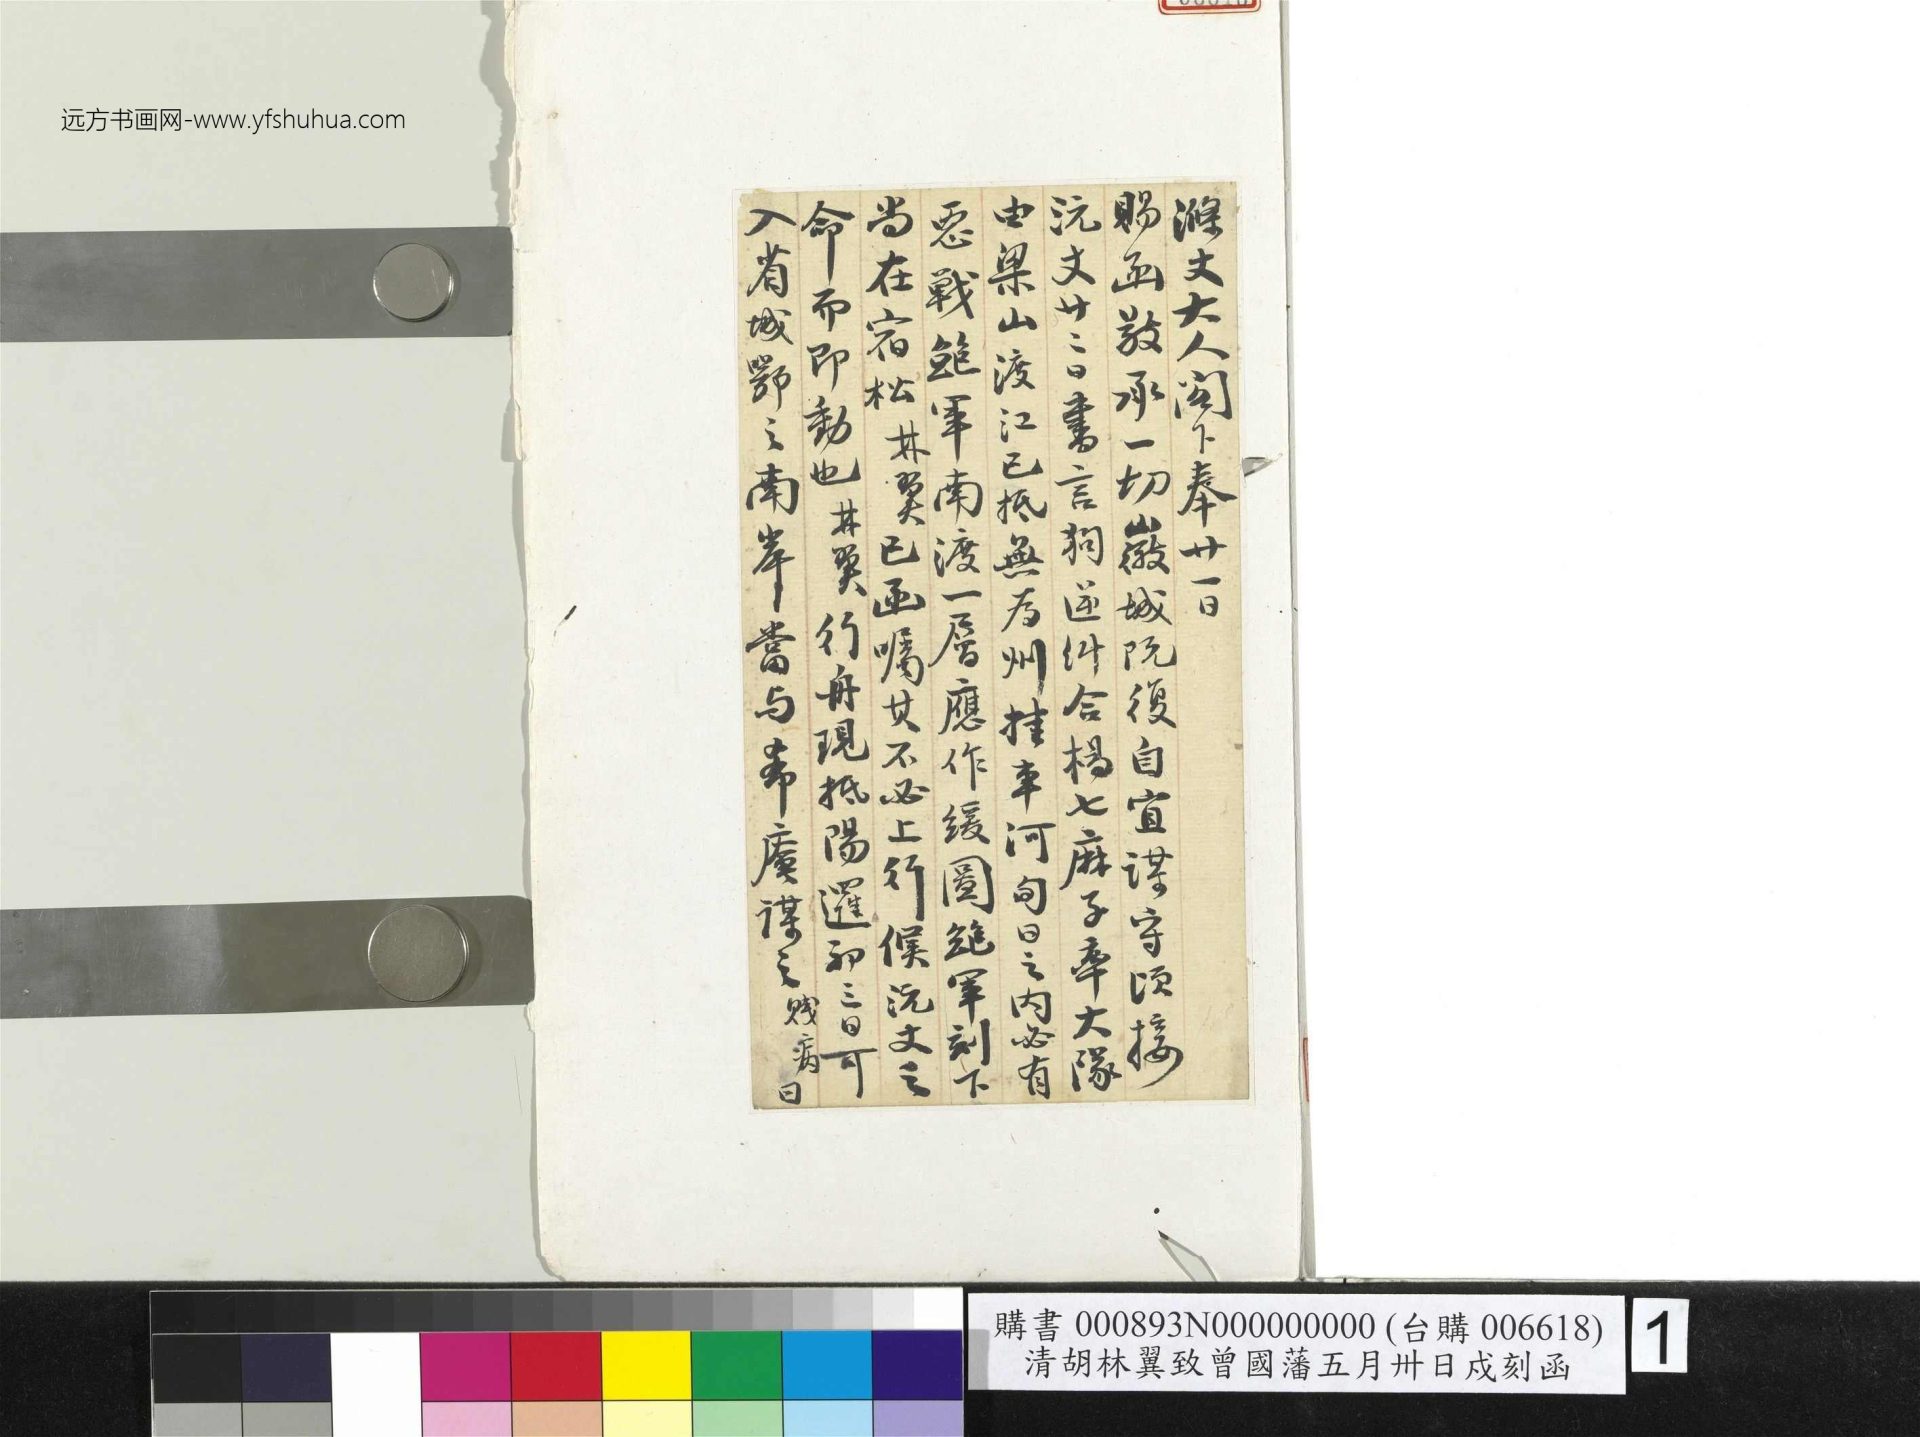 远方书画网-www.yfshuhua.com
滌丈大人閣下奉廿一日
賜函敬承一切徽城既復自宜謀守頃接
沅丈廿二日書言狗逆糾合楊七麻子率大隊
由梁山渡江已抵無為州挂車河旬日之內必有
惡戰鮑軍南渡一層應作緩圖鮑軍刻下
尚在宿松林翼已函囑其不必上行候沅丈之
命而即動也林翼行舟現抵陽邏初三日可
入省城鄂之南岸當与希庵謀之賤病日
購書 000893N000000000 (台購 006618)
清胡林翼致曾國藩五月卅日戍刻函
1